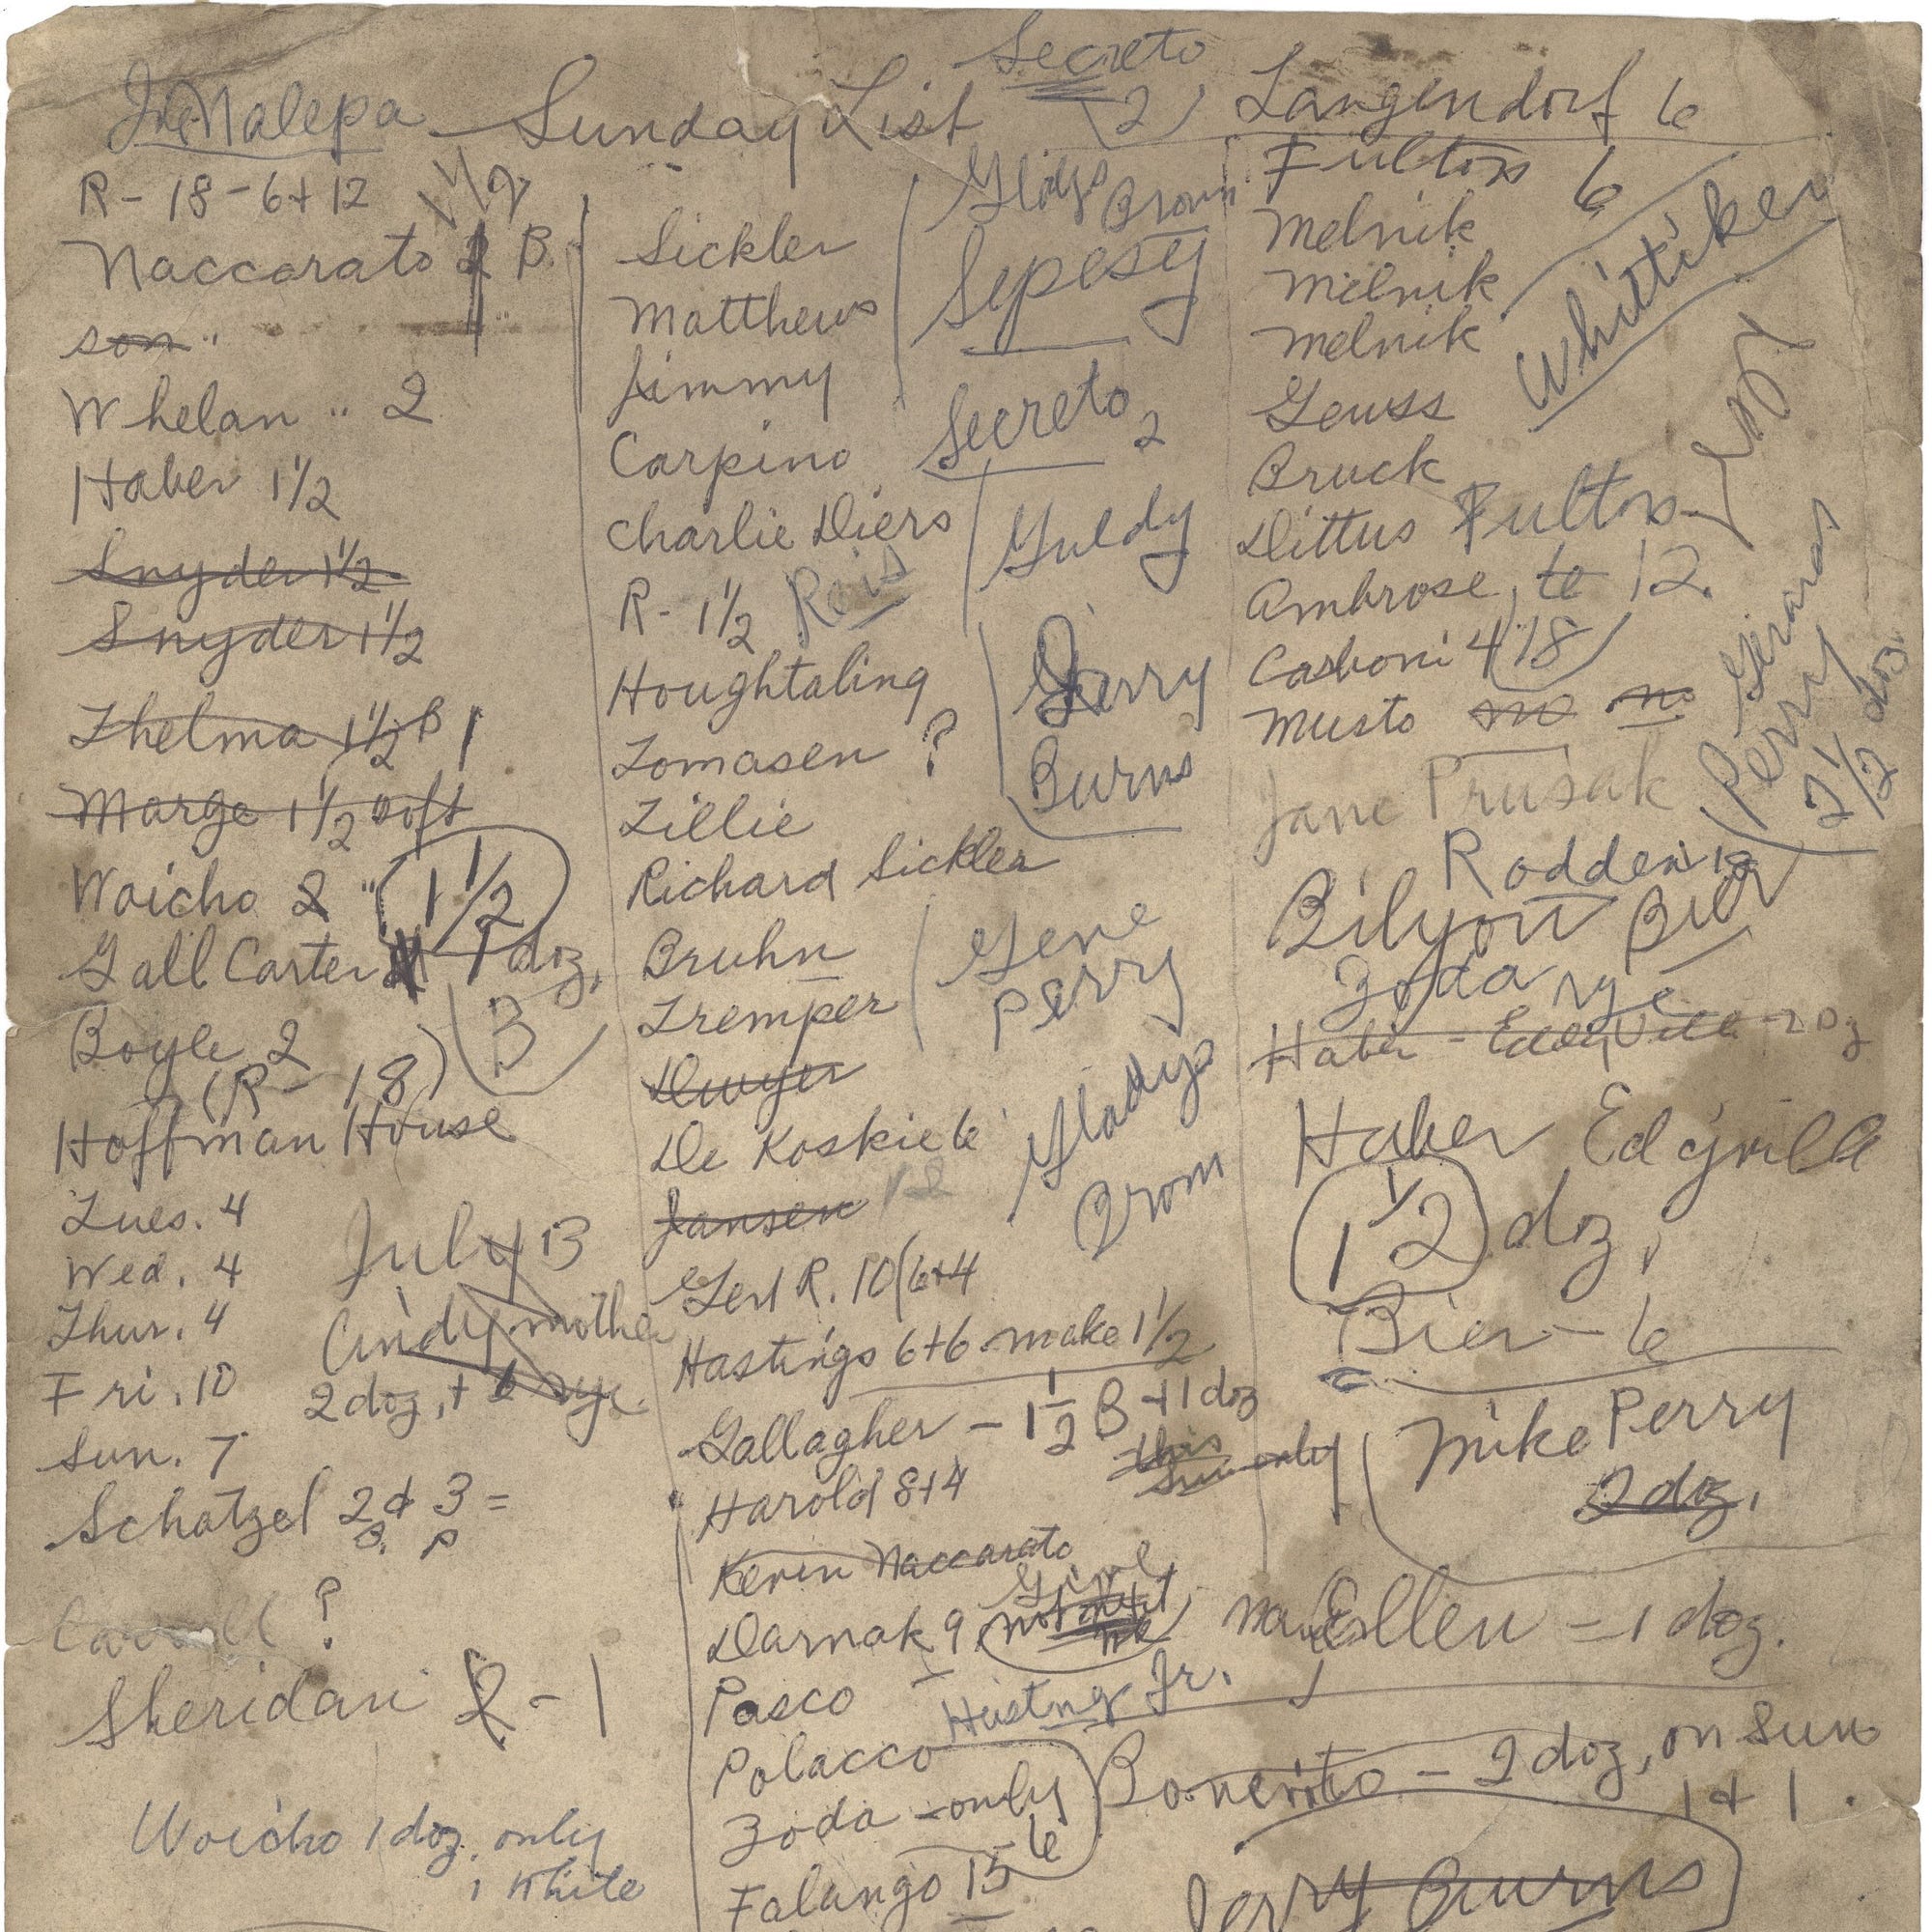 Joe Nalepa - Sunday List
R - 18 - 6 + 12
1 1/2
Naccarato 2 B.
son "
Whelan " 2
Haber 1 1/2
Snyder 1 1/2
Snyder 1 1/2
Thelma 1 1/2 B 1
Marge 1 1/2 soft
Woicho 2 " 1 1/2
Gall Carter 1 doz.
Boyle 2 3
(R - 18)
Hoffman House
Tues. 4
Wed. 4
Thur. 4
Fri. 10
Sun. 7
July 13
Cindy mother
2 doz, + 6 rye
Schatzel 2 + 3 =
B. P
Carroll ?
Sheridan 2 - 1
Woicho 1 doz. only
1 White
Sickler
Matthews
Jimmy
Carpino
Charlie Diers
R - 1 1/2 Reis
Houghtaling
Tomasen ?
Lillie
Richard Sickler
Bruhn
Tremper
Dwyer
De Koskie 6
Jansen 12
Gert R. 10 (6+4
Hastings 6+6 - make 1 1/2
Gallagher - 1 1/2 B + 1 doz
this Sun only
Harold 8+4
Kevin Naccarato
Darnak 9
Pasco
Hasting Jr.
Polacco
Zoda - only 6
Falango 15
Secreto
(2)
Gladys Brown
Sepesy
Secreto 2
Guldy
Gerry
Burns
Gene
Perry
Gladys
Brom
Langendorf 6
Fulton 6
Melnik
Melnik
Melnik
Whittiker
Geuss
Bruck
Dittus Fulton
Ambrose, 12.
Casboni 4 18
Musto no no
Jane Prusak
Gerard
Perry
2 1/2 doz.
Rodden 12
Bilyou Bier
Zoda rye
Haber - Eddyville - 2 Dz
Haber Eddyville
1 1/2 doz.
Bier - 6
Mike Perry
2 doz.
Mary Ellen = 1 doz.
Bonerito - 2 doz, on Sun
1 + 1.
Jerry Burns